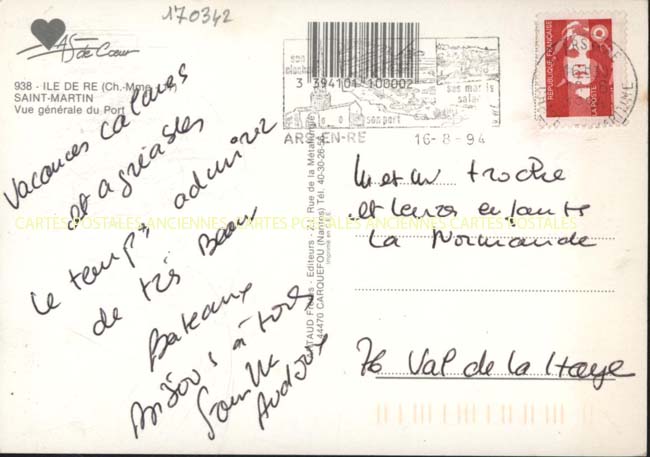 170342
AS de Cœur
938 - ILE DE RE (Ch.-Mme
SAINT-MARTIN
Vue générale du Port
3 394101 100002
son port
ses marais
ARS-EN-RE
16-8-94
REPUBLIQUE FRANÇAISE
LA POSTE
Vacances calmes
et agréables
le temps admirer
de très Beaux
Bateaux
Bisous à tous
famille
CARTES POSTALES ANCIENNES CARTES POSTALES ANCIENNES CARTES POSTALES ANCIENNES
Editeurs - Z.I. Rue de la Métallurgie
44470 CARQUEFOU (Nantes) Tél. 40-30-26-5
Imprimé en C.E.E.
M et Mr Troche
et leurs enfants
La Normande
76 Val de la Haye